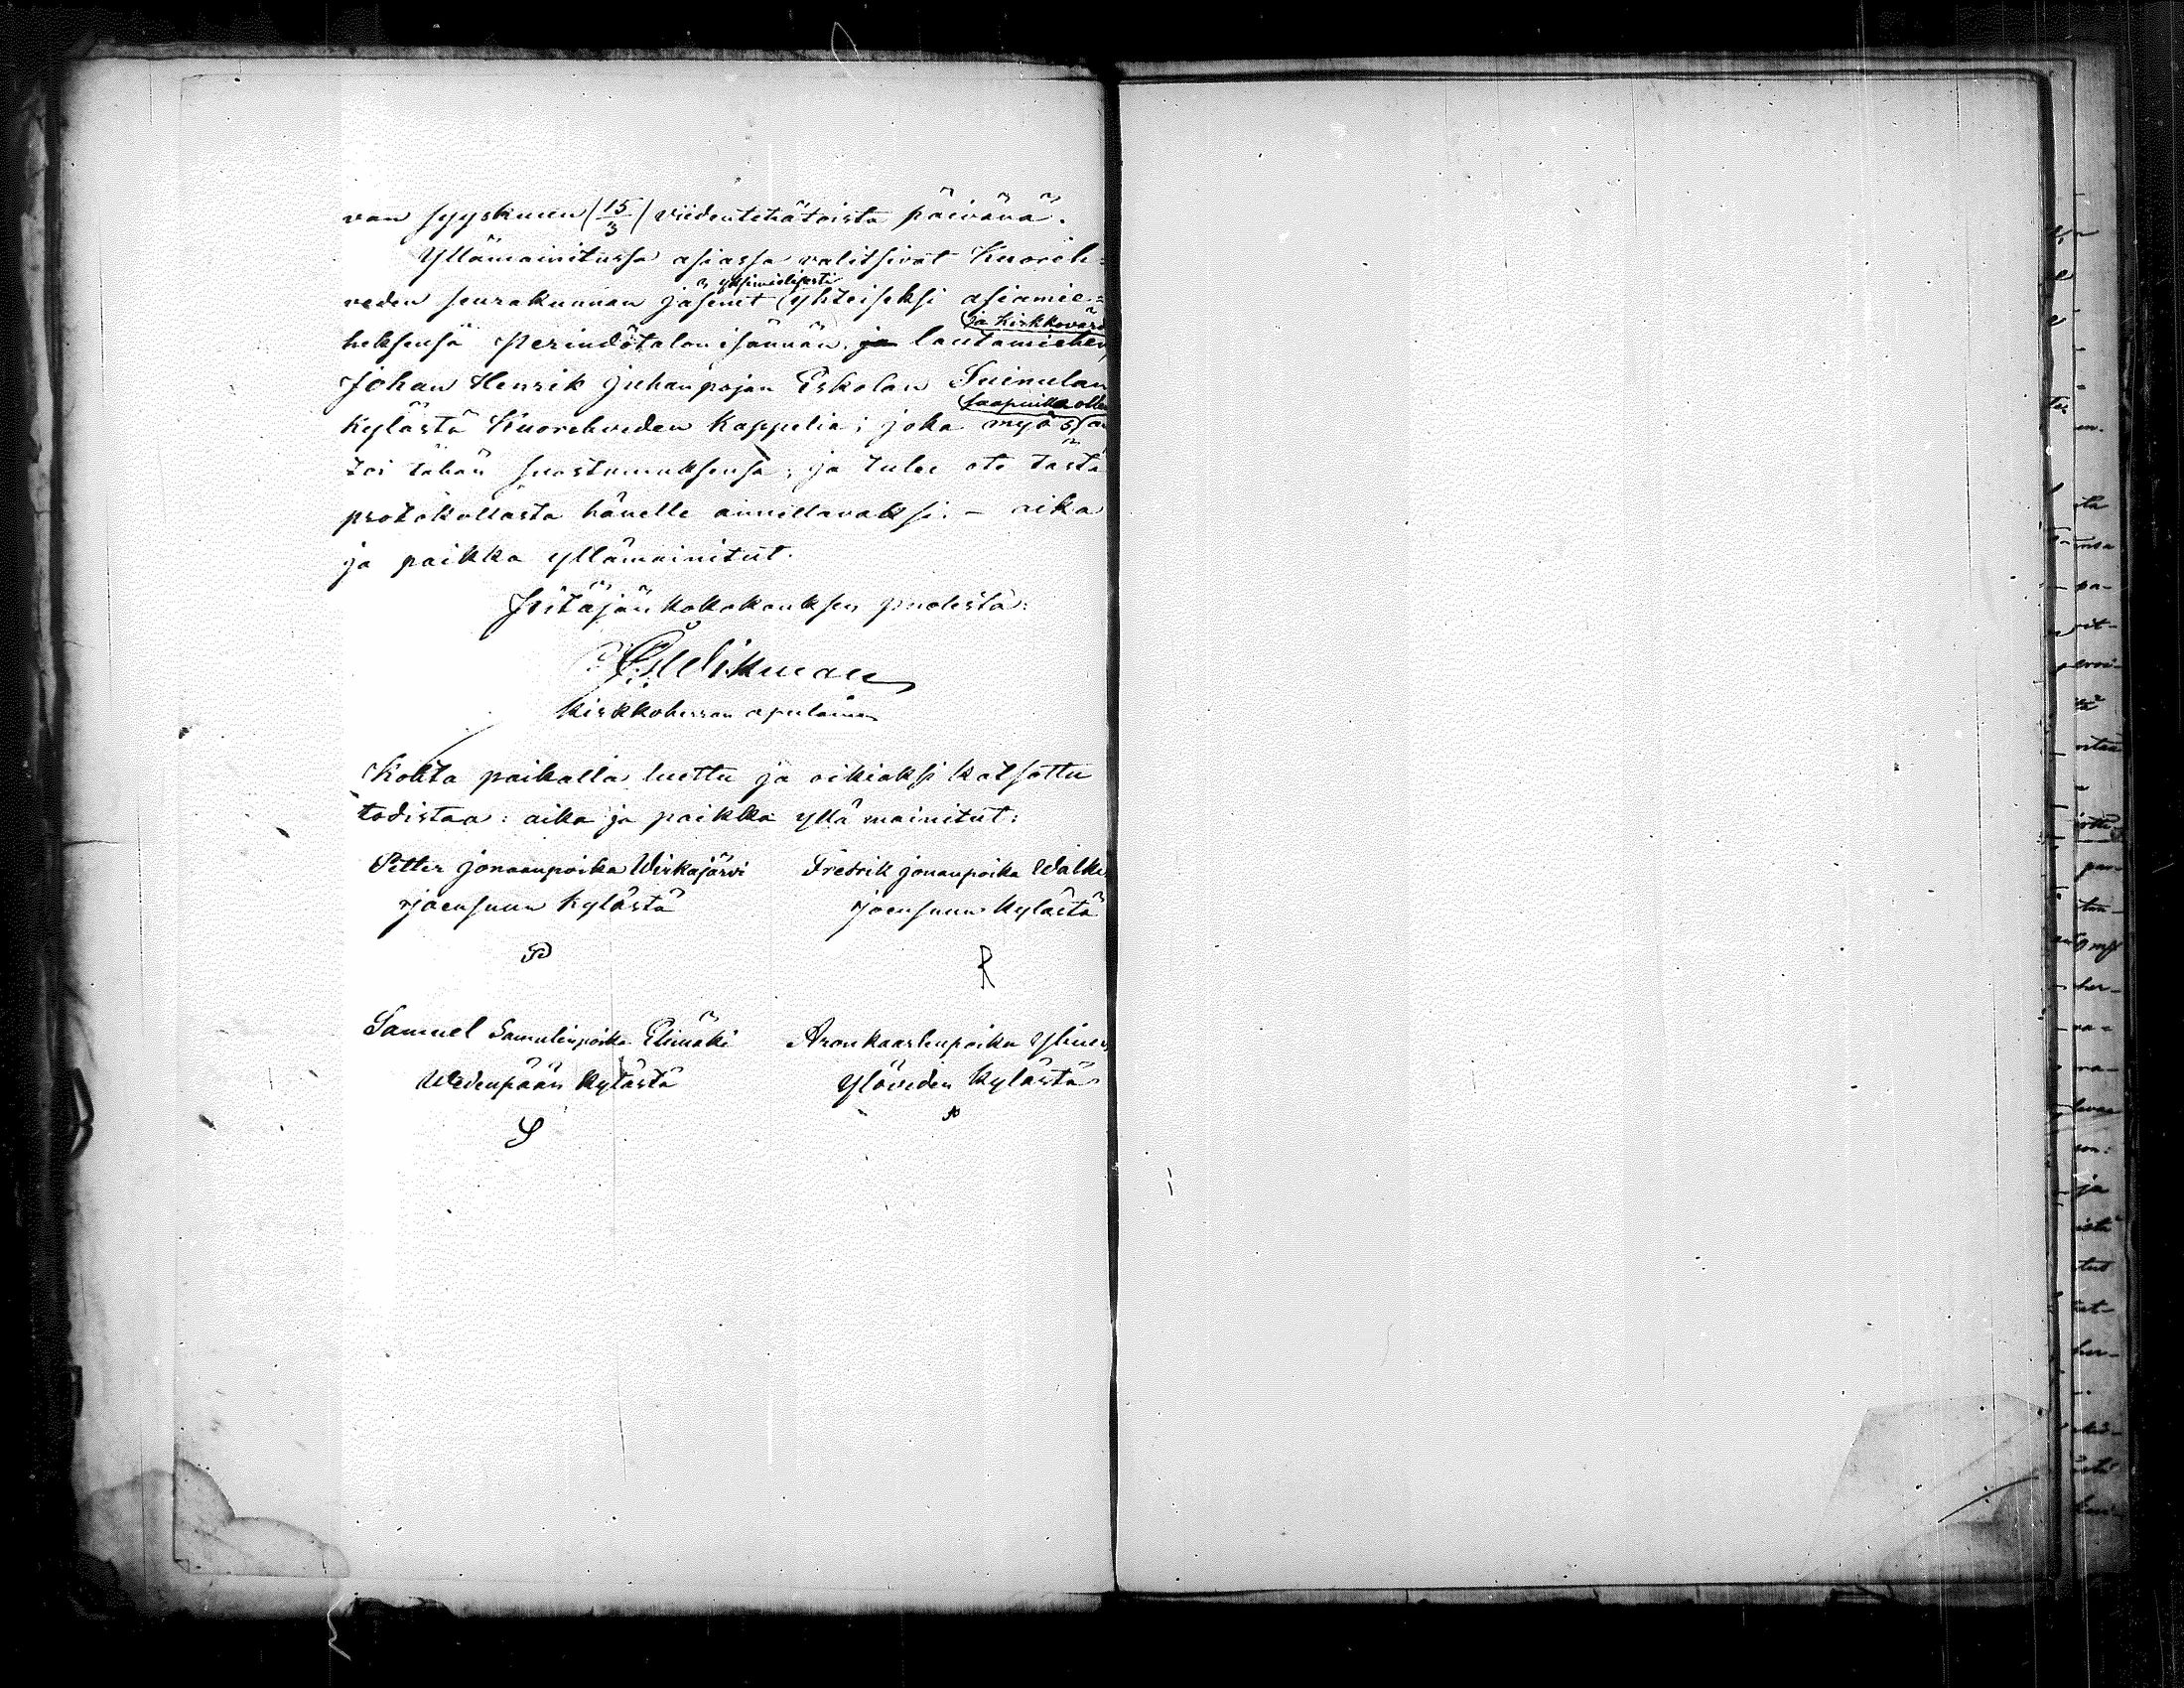 van syyskuun (15/3) viidentetätoista päivänä.
Yllämainitussa asiassa valitsivat Kuoreh=
veden seurakunnan jäsenet yksimielisesti yhteiseksi asiamie=
heksensä Perindötalon isännän, ja lautamiehen ja Kirkkovärd
Johan Henrik Juhanpojan Eskolan Suinulan
kylästä Kuorehveden Kappelia; joka myös saapuilla ollen an
toi tähän suostumuksensa; ja tulee ote tästä
protokollasta hänelle annettavaksi. – aika
ja paikka yllämainitut.
Pitäjänkokokouksen puolesta:
Wikman
Kirkkoherran apulainen
Kohta paikalla luettu ja oikiaksi katsottu
todistaa: aika ja paikka yllä mainitut:
Petter Jonaanpoika Wirkajärvi Fredrik Jonanpoika Walke
Joensuun kylästä Joensuun kylästä
P R
Samuel Samulinpoika Elimäki Aron Kaarlenpoika Ylinen
Wedenpään kylästä Ylöveden kylästä
S A